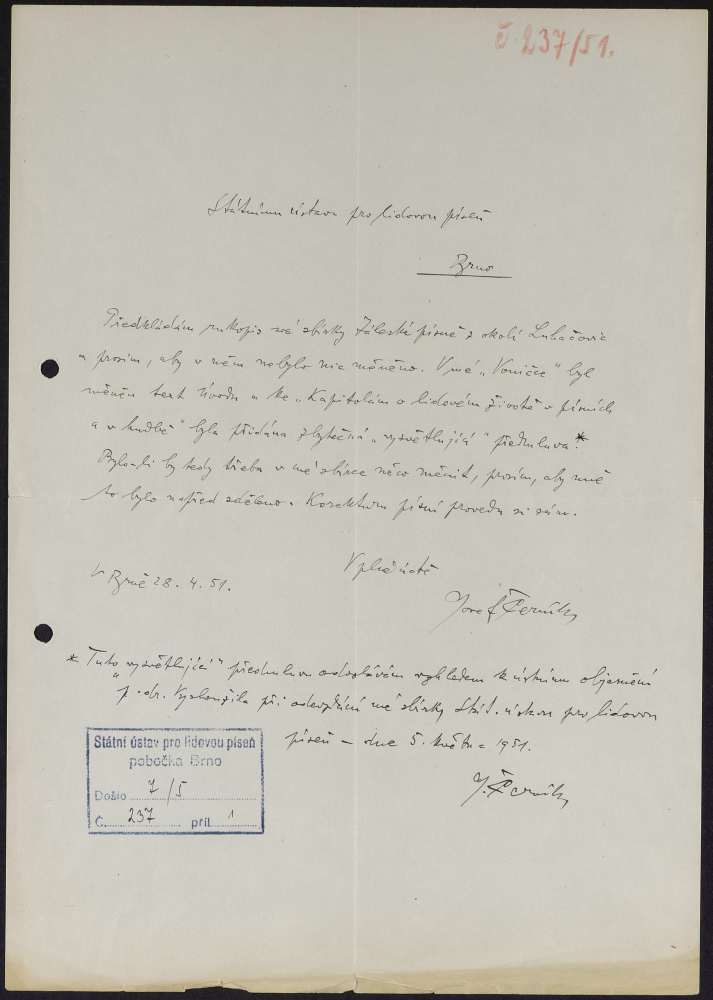 č. 237/51.
Státnímu ústavu pro lidovou píseň
Brno
Předkládám rukopis své sbírky Záleské písně z okolí Luhačovic
a prosím, aby v něm nebylo nic měněno. V mé „Voničce" byl
měněn text Úvodu a ke „Kapitolám o lidovém životě v písních
a v hudbě" byla přidána zbytečná „vysvětlující" předmluva.*
Bylo-li by tedy třeba v mé sbírce něco měnit, prosím, aby mně
to bylo napřed sděleno. Korekturu písní provedu si sám.
V plné úctě
V Brně 28. 4. 51.
Josef Černík
* Tuto „vysvětlující" předmluvu odvolávám vzhledem k ústnímu objasnění
p. dr. Vysloužila při odevzdání mé sbírky Stát. ústavu pro lidovou
píseň – dne 5. května 1951.
J. Černík
Státní ústav pro lidovou píseň
pobočka Brno
Došlo 7/5
Č. 237 příl. 1